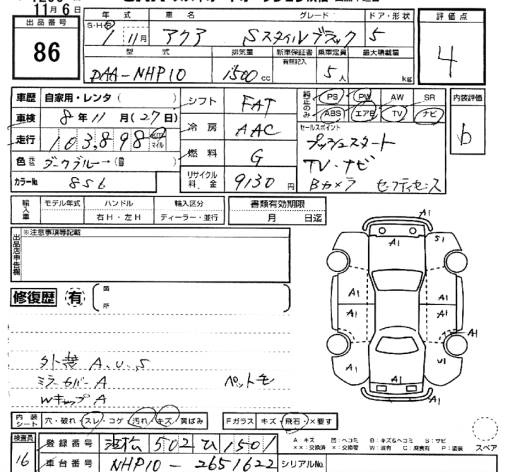 11月6日
出品番号 年式 車名 グレード ドア・形状 評価点
86
S・H 1年11月 アクア Sスタイルブラック 5
4
型式 排気量 新車保証書 有無記入 乗車定員 最大積載量
DAA-NHP10 1500cc 5人 kg
車歴 自家用・レンタ( ) シフト FAT
PS PW AW SR
ABS エアB TV ナビ
内装評価
b
車検 8年11月(27日) 冷房 AAC
セールスポイント
プッシュスタート
走行 103,898 マイル 燃料 G
TV・ナビ
色 ダークブルー→( )
カラーNo 8S6 リサイクル料金 9130円
Bカメラ セーフティセンス
輸入車 モデル年式 ハンドル 輸入区分 書類有効期限
右H・左H ディーラー・並行 月 日迄
出品店申告欄 ※注意事項等記載
修復歴 有 箇所
外装 A.U.S
ミラーカバーA ペットモ
WキャップA
A1 A1 S1
A1 A1 A1
A1 A1 A1
A1 U1
A1
内装シート 穴・破れ・スレ・コゲ・汚れ・キズ・黄ばみ Fガラス キズ・飛石・×要す
スペア
検査員 16
登録番号 浜松 502 ひ 1501
A:キズ U:ヘコミ B:キズ&ヘコミ S:サビ
車台番号 NHP10-2651622 シリアルNo.